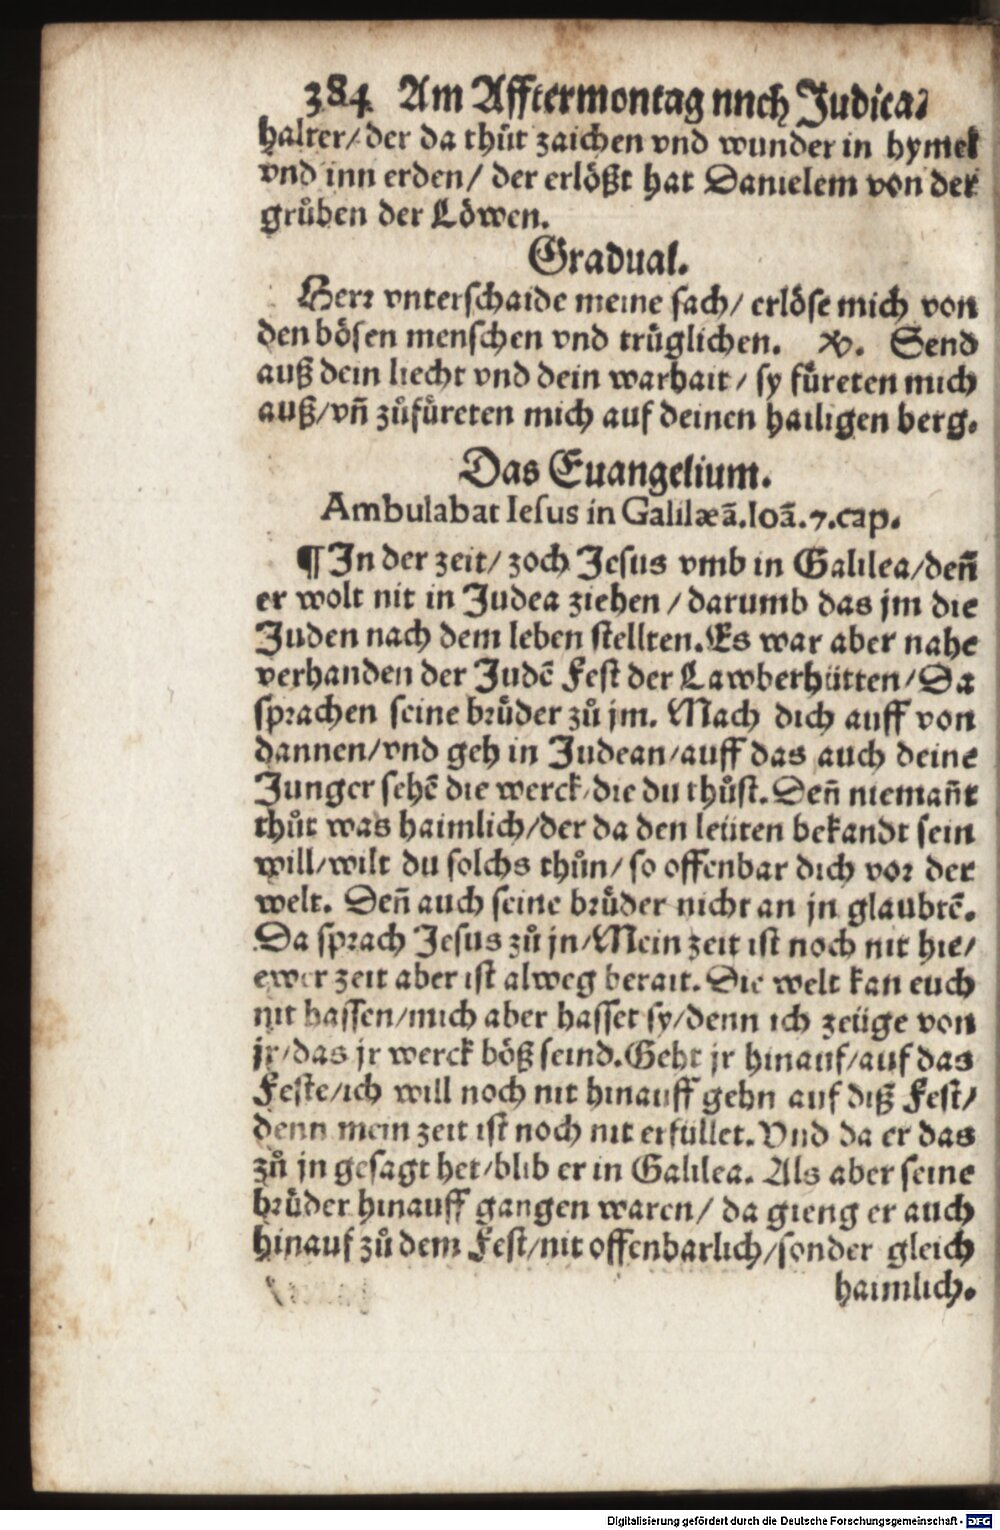 384 Am Afftermontag nnch Judica.
halter/der da thůt zaichen vnd wunder in hymel
vnd inn erden/ der erlößt hat Danielem von der
grůben der Löwen.
Gradual.
Herr vnterschaide meine sach/ erlöse mich von
den bösen menschen vnd trüglichen. ℣. Send
auß dein liecht vnd dein warhait/ sy fůreten mich
auß/vñ zůfůreten mich auf deinen hailigen berg.
Das Euangelium.
Ambulabat Iesus in Galilæã.Ioã.7.cap.
¶ In der zeit/ zoch Jesus vmb in Galilea/deñ
er wolt nit in Judea ziehen/darumb das jm die
Juden nach dem leben stellten.Es war aber nahe
verhanden der Judẽ Fest der Lawberhütten/Da
sprachen seine brůder zů jm. Mach dich auff von
dannen/vnd geh in Judean/auff das auch deine
Junger sehẽ die werck/die du thůst.Deñ niemañt
thůt was haimlich/der da den leüten bekandt sein
will/wilt du solchs thůn/ so offenbar dich vor der
welt. Deñ auch seine brůder nicht an jn glaubtẽ.
Da sprach Jesus zů jn/Mein zeit ist noch nit hie/
ewer zeit aber ist alweg berait. Die welt kan euch
nit hassen/mich aber hasset sy/denn ich zeüge von
jr/das jr werck böß seind.Geht jr hinauf/auf das
Feste/ich will noch nit hinauff gehn auf diß Fest/
denn mein zeit ist noch nit erfüllet.Vnd da er das
zů jn gesagt het/blib er in Galilea. Als aber seine
brůder hinauff gangen waren/ da gieng er auch
hinauf zů dem Fest/nit offenbarlich/sonder gleich
haimlich.
Digitalisierung gefördert durch die Deutsche Forschungsgemeinschaft - DFG